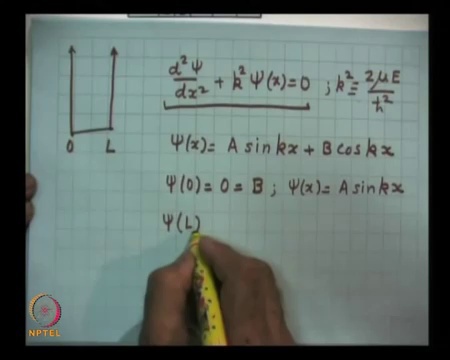 d²Ψ/dx² + k²Ψ(x)=0 ; k² = 2μE/ħ²
0 L
Ψ(x)= A sin kx + B cos kx
Ψ(0) = 0 = B ; Ψ(x)= A sin kx
Ψ(L)
NPTEL